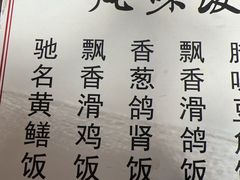 驰名黄鳝饭
飘香滑鸡饭
香葱鸽肾饭
飘香滑鸽饭